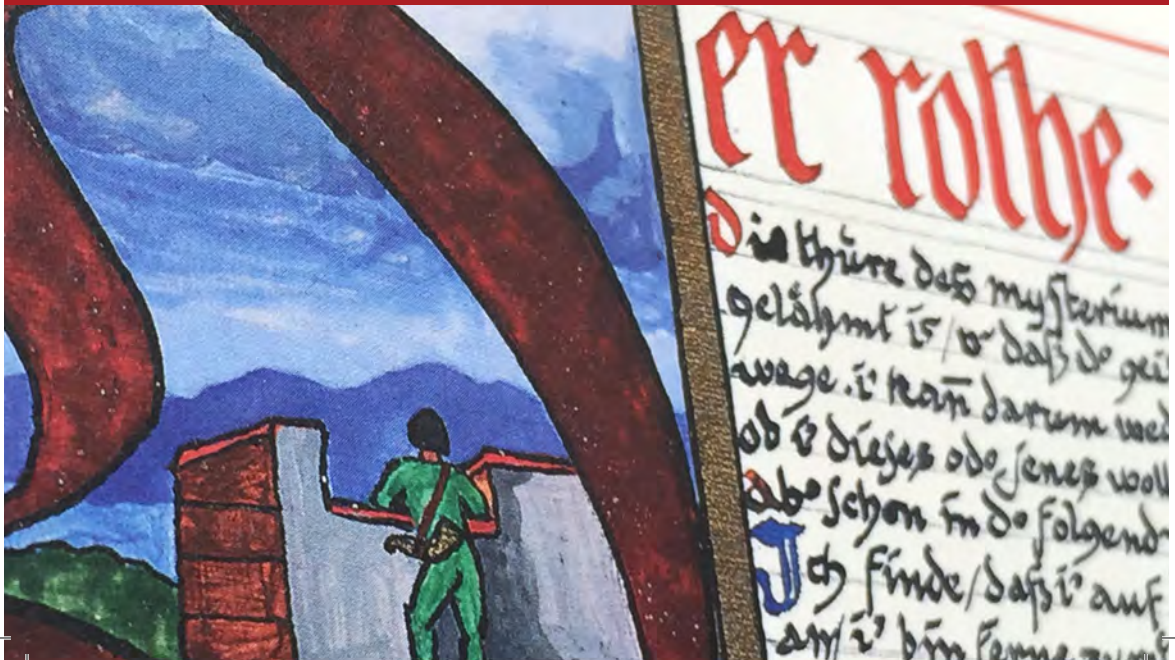 er rothe.
Die thüre deß mysterium
gelähmt is / v daß do
wege. i' kañ darum
ob i' dieses odo jenes woll
abo schon in do folgend
Ich finde / daß i' auf
an / i' bin ferne